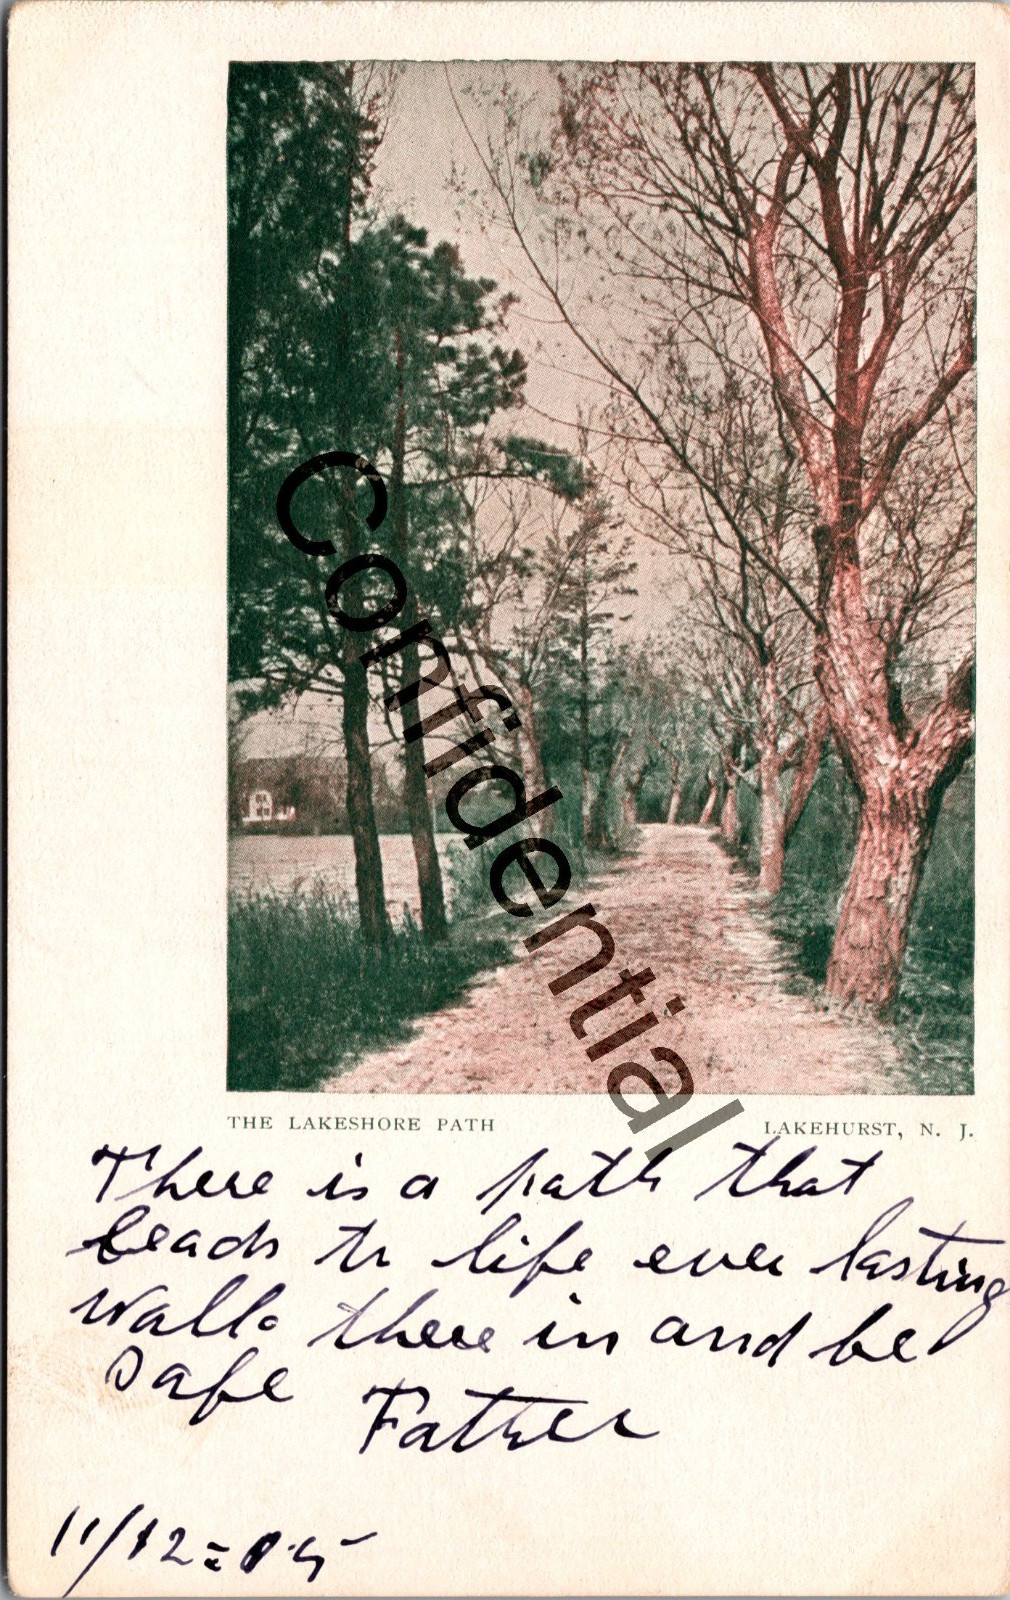 Confidential
THE LAKESHORE PATH LAKEHURST, N. J.
There is a path that
leads to life ever lasting
walk there in and be
safe
Father
11/12=05